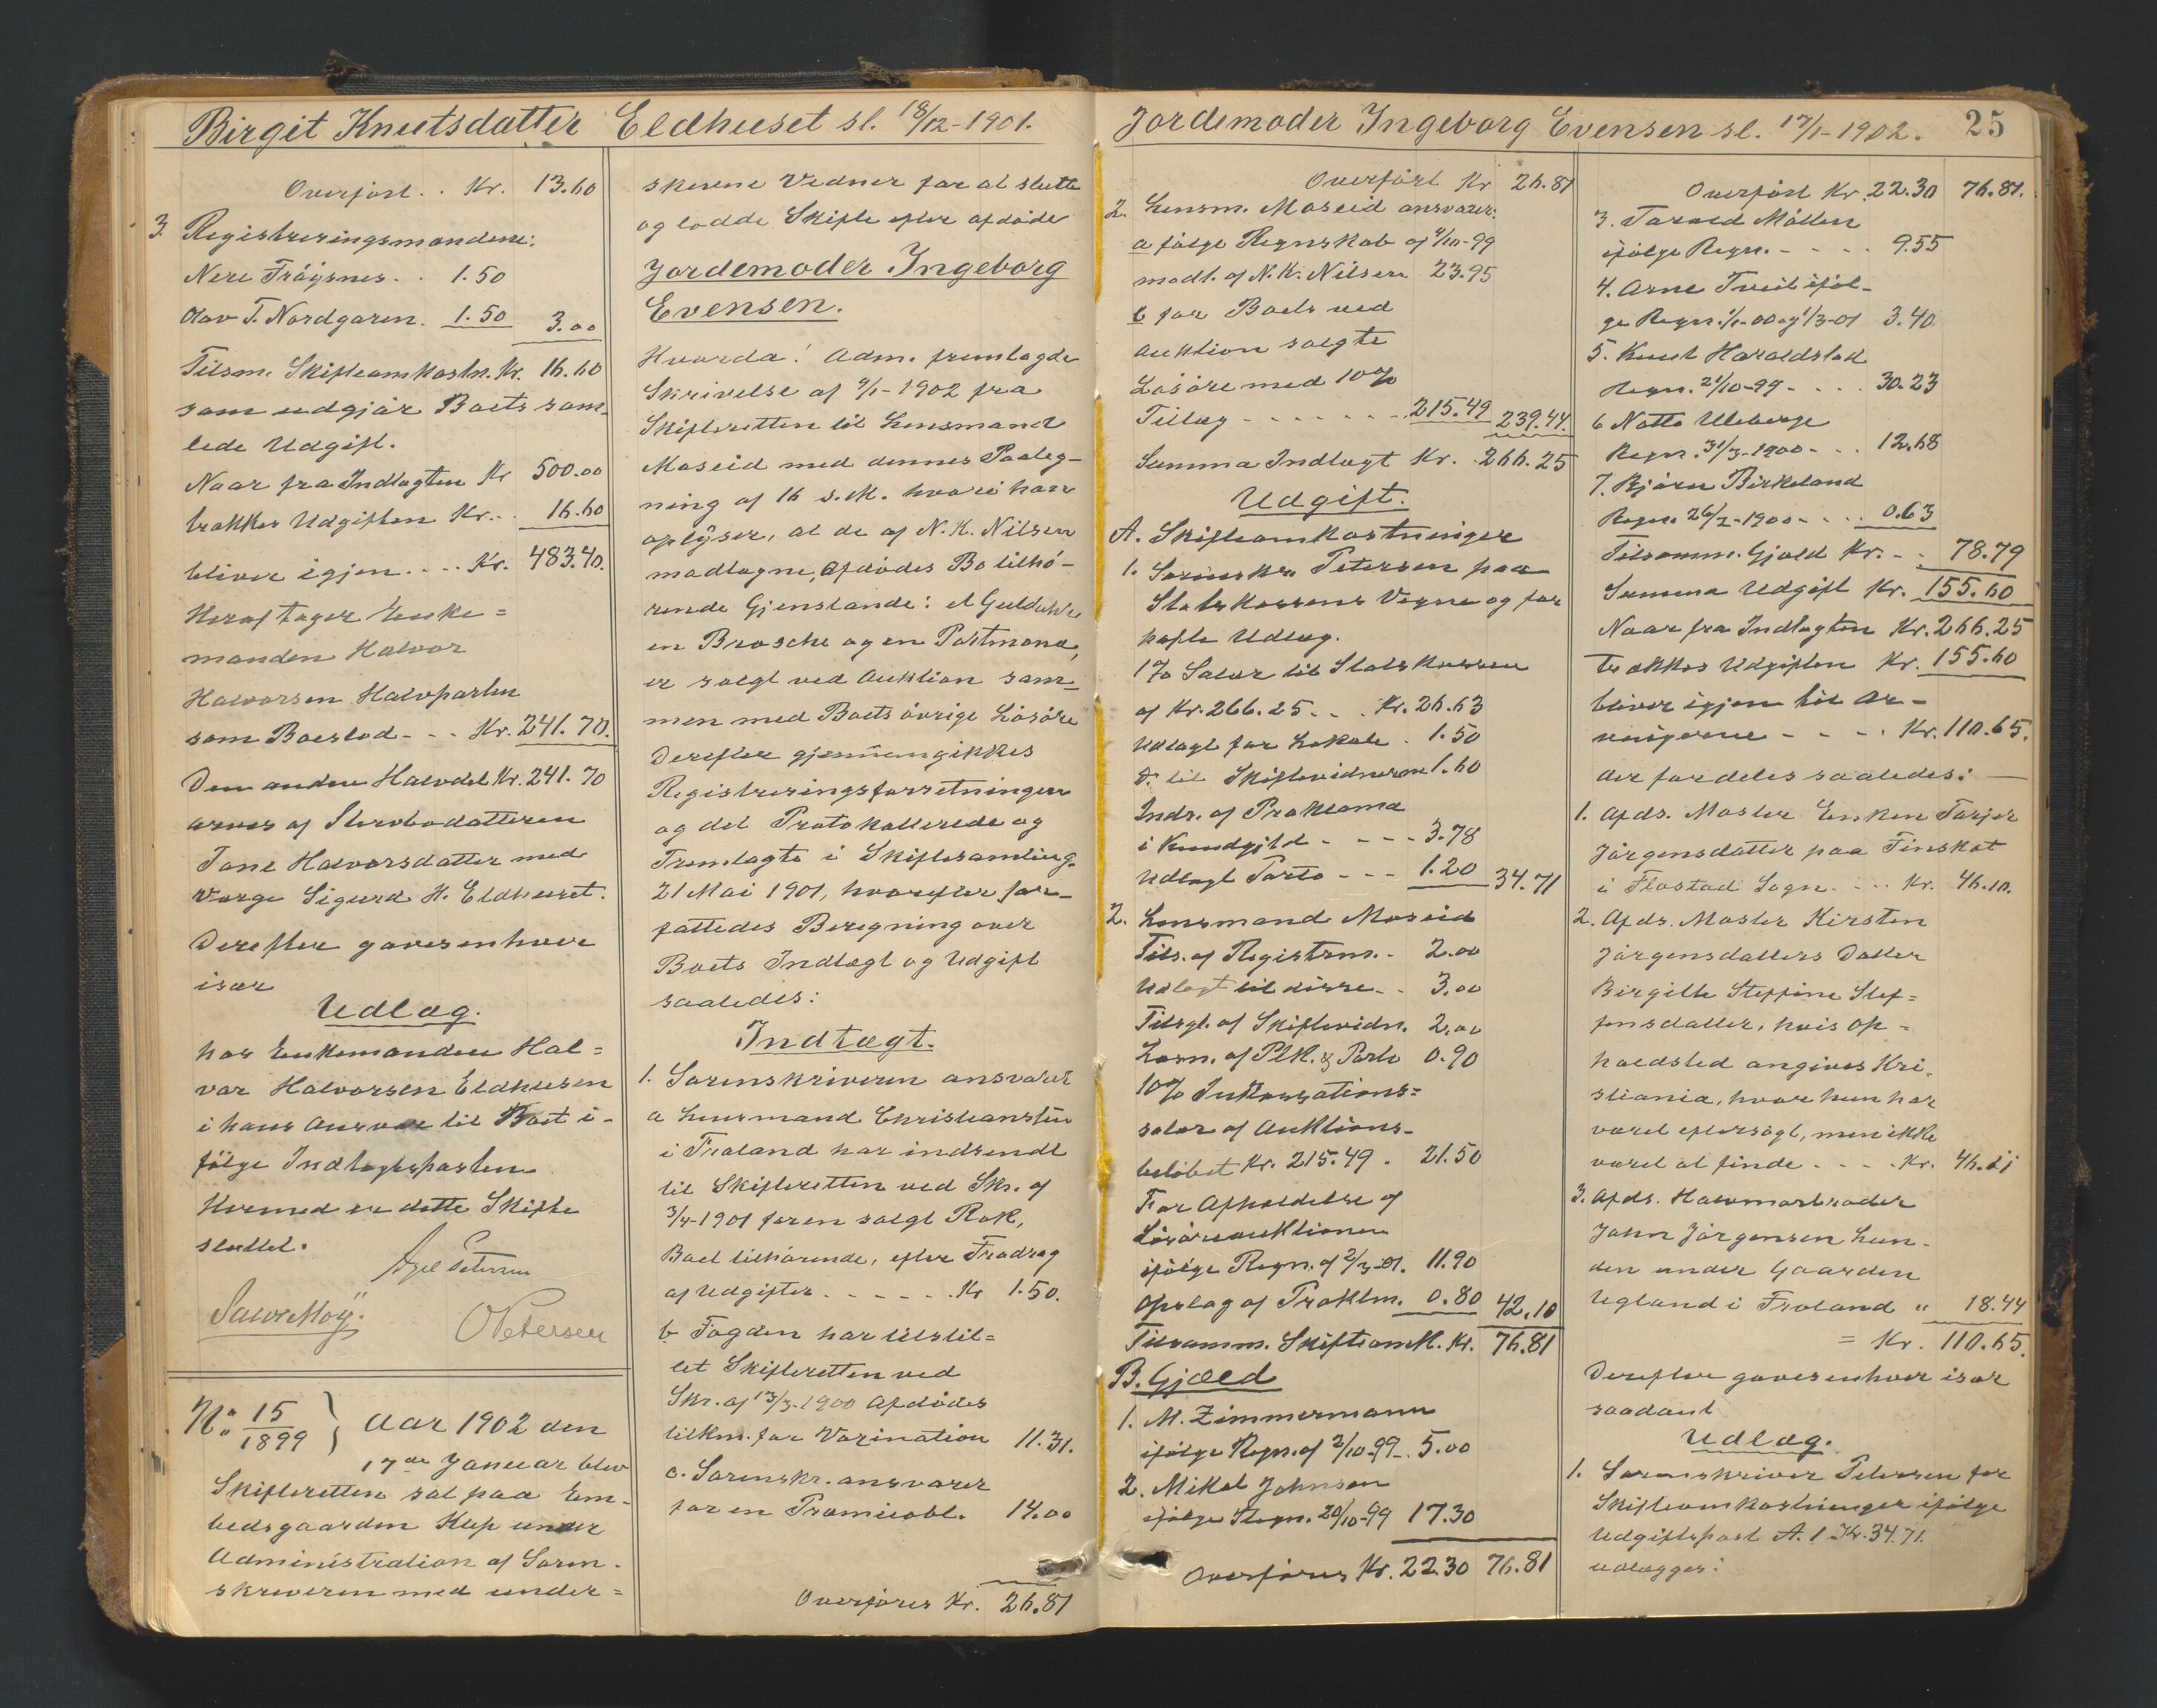 Birgit Knutsdatter Eldhuset sl. 18/12-1901.
Overført . . Kr. 13.60
3. Registreringsmændene:
Nere Frøysnes . . 1.50
Olav T. Nordgaren. 1.50 3.00
Tilsm. Skifteomkostn. Kr. 16.60
som udgjør Boets sam-
lede Udgift.
Naar fra Indtægten Kr 500.00
trækkes Udgiften Kr. . 16.60
bliver igjen . . . . Kr. 483.40.
Heraf tager Enke=
manden Halvor
Halvorsen Halvparten
som Boeslod - - - Kr. 241.70.
Den anden Halvdel Kr. 241.70
arves af Stervbodatteren
Tone Halvorsdatter med
Værge Sigurd H. Eldhuset.
Derefter gaves enhver
især
Udlæg.
har Enkemanden Hal=
vor Halvorsen Eldhusen
i hans Ansvar til Boet i-
følge Indtægtsposten
Hermed er dette Skifte
sluttet.
Axel Petersen
Salve Moÿ.
O Petersen
No. 15/1899 } Aar 1902 den
17de Januar blev
Skifteretten sat paa Em-
bedsgaarden Klep under
Administration af Soren-
skriveren med under=
skrevne Vidner for at slutte
og lodde Skifte efter afdøde
Jordemoder Ingeborg
Evensen.
Hvorda! Adm. fremlagde
Skrivelse af 9/1-1902 fra
Skifteretten til Lensmand
Moseid med dennes Paateg-
ning af 16 s. M. hvori han
oplÿser, at de af N. K. Nilsen
modtagne, Afdødes Bo tilhø-
rende Gjenstande: et Gulduhr
en Brosche og en Portmonæ,
er solgt ved Auktion sam-
men med Boets øvrige Løsøre
Derefter gjennemgikkes
Registreringsforretningen
og det Protokollerede og
Fremlagte i Skiftesamling
21 Mai 1901, hvorefter for-
fattedes Beregning over
Boets Indtægt og Udgift
saaledes:
Indtægt.
1. Sorenskriveren ansvarer
a Lensmand Christiansen
i Froland har indsendt
til Skifteretten ved Skr. af
3/4-1901 for en solgt Rok,
Boet tilhørende, efter Fradrag
af Udgifter . - - - - - . Kr 1.50.
b Fogden har tilstil=
let Skifteretten ved
Skr. af 13/3-1900 Afdødes
tilkm. for Vaxination 11.31.
c. Sorenskr. ansvarer
for en Præmieobl. 14.00
Overføres Kr. 26.81
Jordemoder Ingeborg Evensen sl. 17/1-1902. 25
Overført Kr 26.81
2. Lensm. Moseid ansvarer:
a følge Regnskab af 4/10-99
modt. af N. K. Nilsen 23.95
b for Boets ved
Auktion solgte
Løsøre med 10%
Tillæg - - - - - - - 215.49 239.44.
Summa Indtægt Kr. . 266.25
Udgift.
A. Skifteomkostninger
1. Sorenskr. Petersen paa
Statskassens Vegne og for
hafte Udlæg.
1% Salær til Statskassen
af Kr. 266.25 . . . Kr. 26.63
Udlagt for Lokale . 1.50
Do til Skiftevidnerne 1.60
Indr. af Proklama
i Kundgjtd - - - - 3.78
Udlagt Porto - - - 1.20 34.71
2. Lensmand Moseid
Tils. af Registrm. - 2.00
Udlagt til disse - . 3.00
Tilsgl. af Skiftevidn. 2.00
Lævn. af Plk. & Porto 0.90
10% Inkassations=
salær af Auktions-
beløbet Kr. 215.49 . 21.50
For Afholdelse af
Løsøreauktionen
ifølge Regn. af 2/3-01. 11.90
Opslag af Proklm. 0.80 42.10
Tilsamm. Skifteomk. Kr. 76.81
B. Gjæld
1. M. Zimmermann
ifølge Regn. af 2/10-99 . 5.00
2. Mikal Johnsen
ifølge Regn. 20/10-99 17.30
Overføres Kr. 22.30 76.81
Overført Kr. 22.30 76.81.
3. Tarald Møllen
ifølge Regn. - - - - 9.55
4. Arne Tveit iføl-
ge Regn. 1/1-00 og 1/3-01 3.40
5. Knut Haraldstad
Regn. 21/10-99 - . . . 30.23
6 Notto Uleberge
Regn. 31/3-1900 - . . 12.68
7. Bjørn Birkeland
Regn. 26/2-1900 - - . . 0.63
Tilsamm. Gjæld Kr. - . 78.79
Summa Udgift Kr. 155.60
Naar fra Indtægten Kr. 266.25
trækkes Udgiften Kr. 155.60
bliver igjen til Ar-
vingerne - - - - . Kr. 110.65.
der fordeles saaledes:
1. Afds. Moster Enken Torjer
Jørgensdatter paa Finskot
i Flostad Sogn. - - . Kr. 46.10.
2. Afds. Moster Kirsten
Jørgensdatters Datter
Birgitte Steffine Stef=
fensdatter, hvis Op-
holdsted angives Kri-
stiania, hvor hun har
været eftersøgt, men ikke
været at finde . - - . Kr. 46.11
3. Afds. Halvmorbroder
John Jørgensen Lun-
den under Gaarden
Ugland i Froland " 18.44
= Kr. 110.65.
Derefter gaves enhver især
saadant
Udlæg.
1. Sorenskriver Petersen for
Skifteomkostninger ifølge
Udgiftspost A. 1 Kr. 34.71.
udlægges: